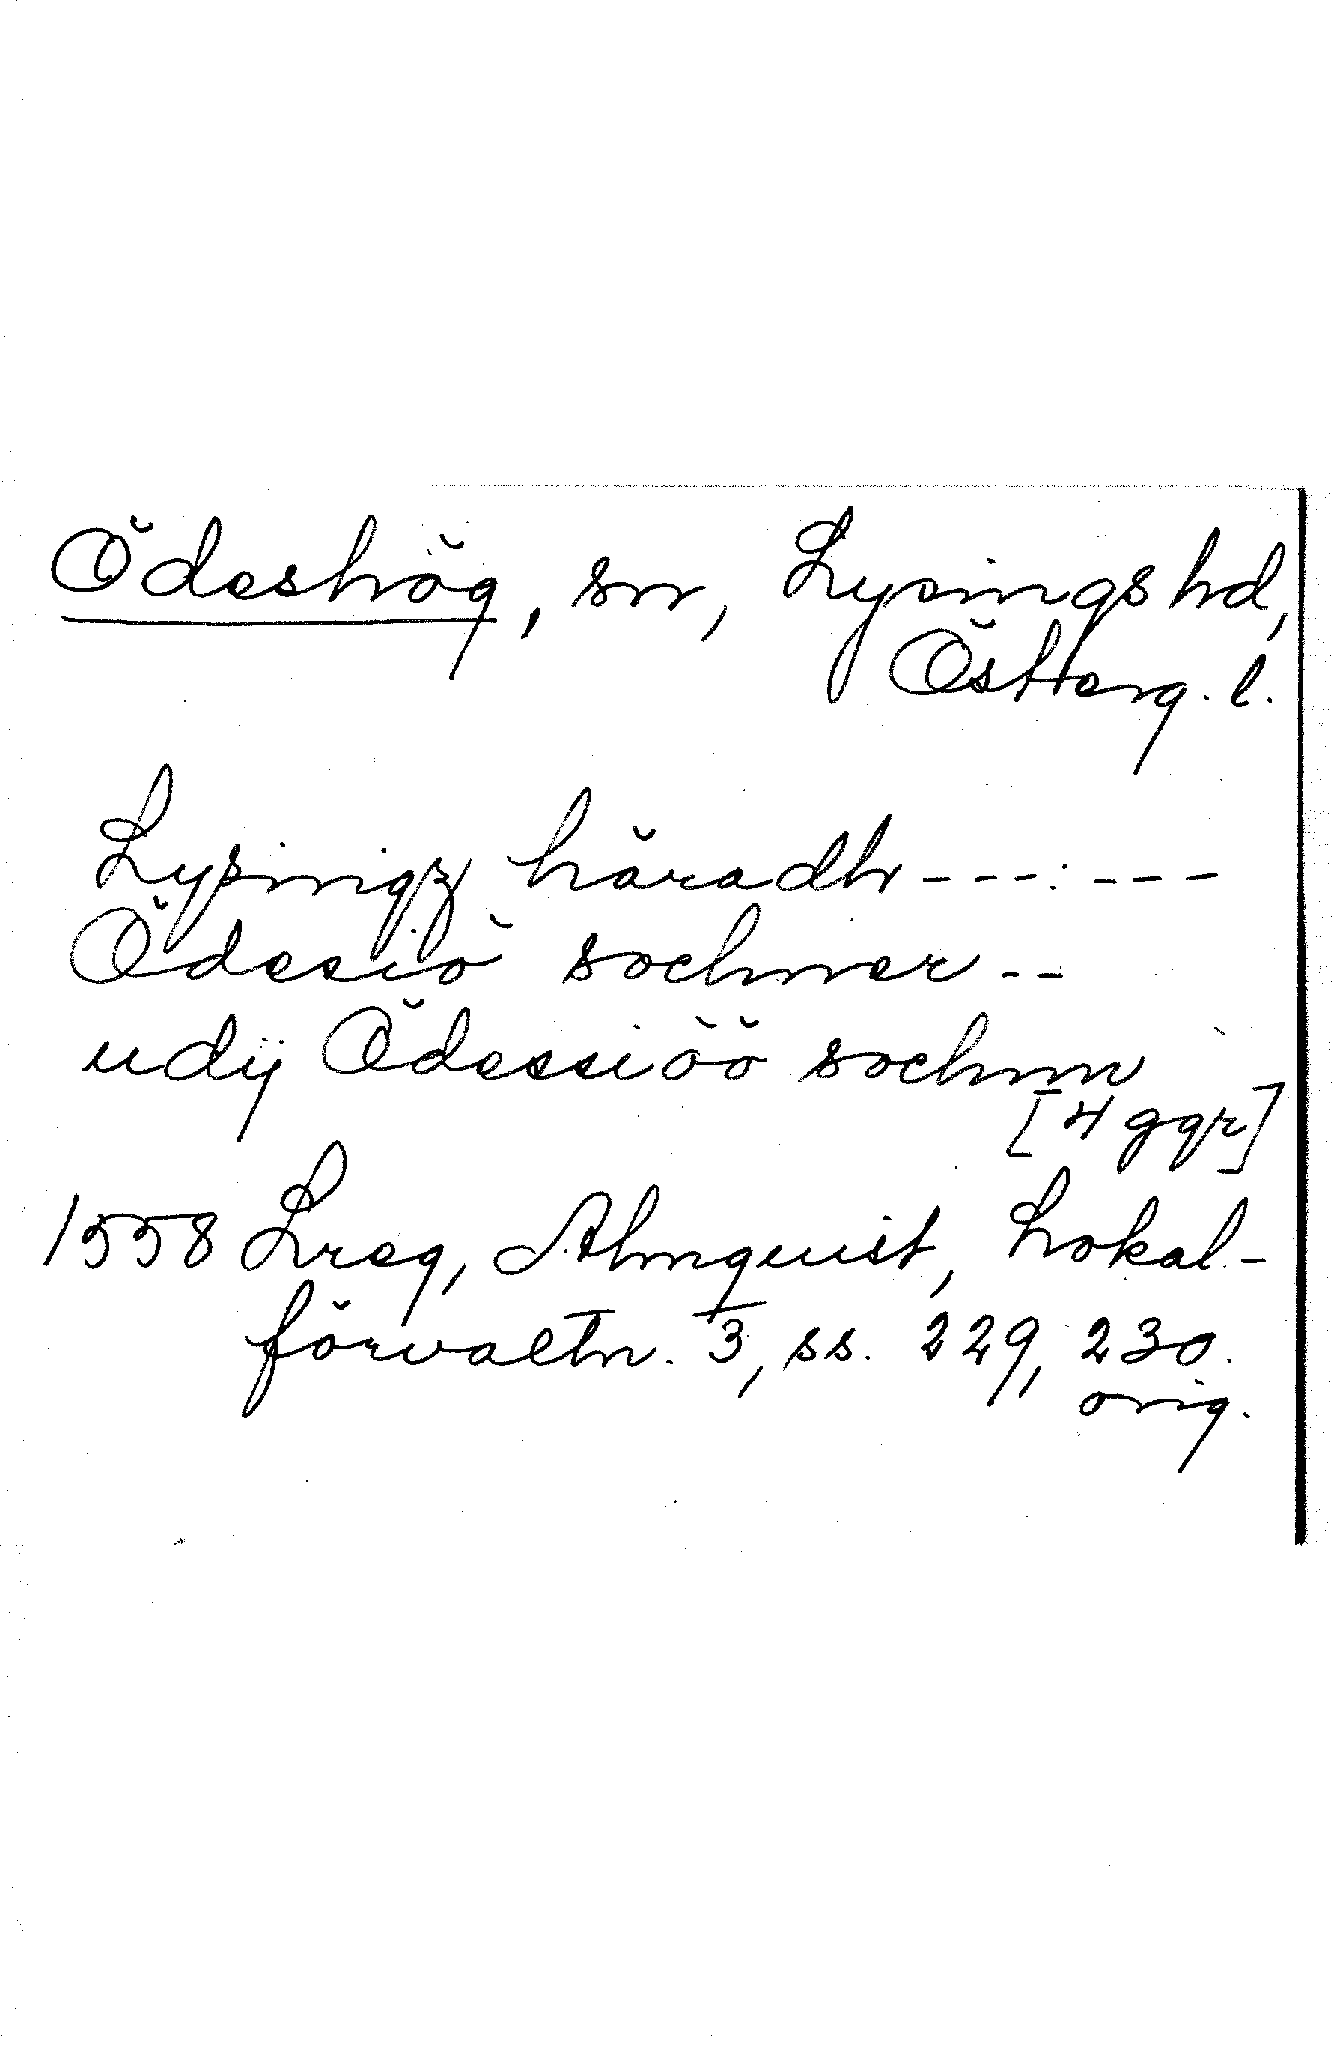 Ödeshög, sn, Lysings hd,
Österg. l.
Lysingz häradh - - - : - - -
Ödesiö sochner - -
udÿ Ödessiöö sochnn
[4 ggr]
1558 Lreg, Almquist, Lokal-
förvaltn. 3, ss. 229, 230.
orig.